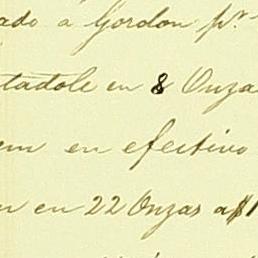 ado a Gordon pr.
tadole en 8 Onza
em en efectivo
n en 22 Onzas a $1